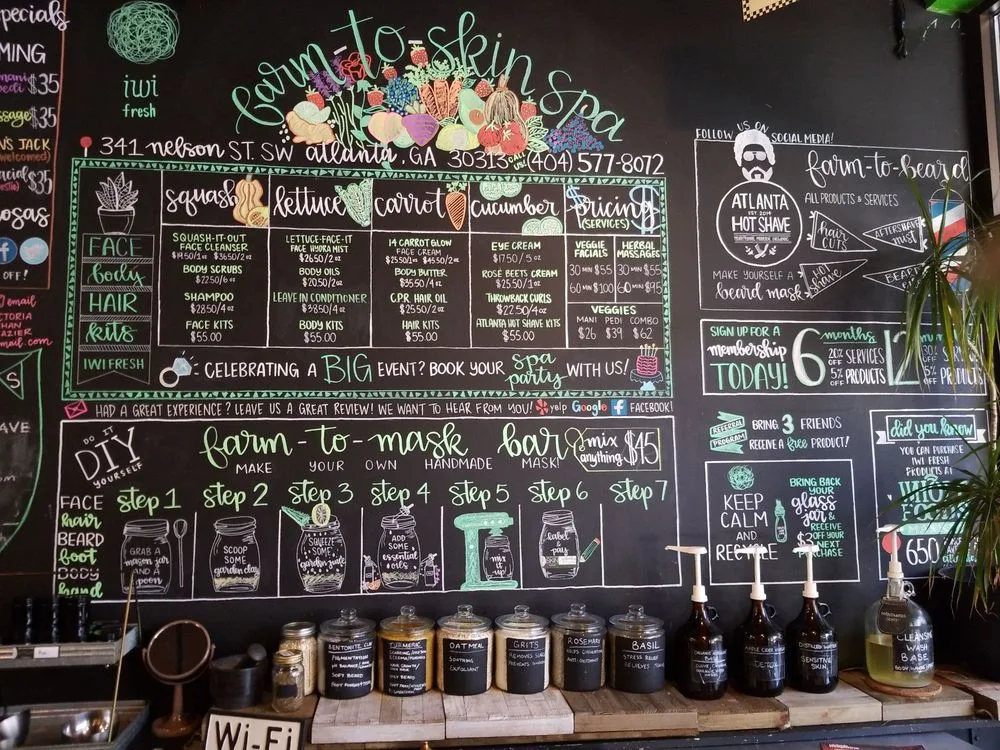 pecials
MING
$35
$35
JACK
$35
OFF!
email
iwi
fresh
farm-to-skin spa
341 nelson ST. SW atlanta, GA 30313 (404) 577-8072
squash lettuce carrot cucumber pricing
(SERVICES)
FACE
body
HAIR
kits
IWI FRESH
SQUASH-IT-OUT
FACE CLEANSER
BODY SCRUBS
$22.50/6 oz
SHAMPOO
$28.50/4 oz
FACE KITS
$55.00
LETTUCE-FACE-IT
FACE HYDRA MIST
$26.50/2 oz
BODY OILS
$20.50/2 oz
LEAVE IN CONDITIONER
$38.50/4 oz
BODY KITS
$55.00
14 CARROT GLOW
FACE CREAM
BODY BUTTER
$35.50/4 oz
C.P.R. HAIR OIL
$25.50/2 oz
HAIR KITS
$55.00
EYE CREAM
$17.50/.5 oz
ROSÉ BEETS CREAM
$25.50/2 oz
THROWBACK CURLS
$22.50/4 oz
ATLANTA HOT SHAVE KITS
$55.00
VEGGIE HERBAL
FACIALS MASSAGES
30 MIN $55 30 MIN $55
60 MIN $100 60 MIN $95
VEGGIES
MANI PEDI COMBO
$26 $39 $62
: CELEBRATING A BIG EVENT? BOOK YOUR spa party WITH US!
HAD A GREAT EXPERIENCE? LEAVE US A GREAT REVIEW! WE WANT TO HEAR FROM YOU! yelp Google f FACEBOOK!
DO IT
DIY
YOURSELF
farm-to-mask bar
MAKE YOUR OWN HANDMADE MASK!
mix
anything $45
FACE
hair
BEARD
foot
BODY
hand
step 1 step 2 step 3 step 4 step 5 step 6 step 7
GRAB A
mason jar
AND A
spoon
SCOOP
SOME
garden clay
SQUEEZE
SOME
garden juice
ADD
SOME
essential
oils
mix
it
up!
label
&
pay
FOLLOW US ON SOCIAL MEDIA!
ATLANTA
EST 2014
HOT SHAVE
farm-to-beard
ALL PRODUCTS & SERVICES
hair
CUTS
AFTERSHAVE
mist
HOT
shave
BEARD
MAKE YOURSELF A
beard mask
SIGN UP FOR A
membership
TODAY!
6 months
20% OFF SERVICES
5% OFF PRODUCTS
12
30% OFF SERVICES
5% OFF PRODUCTS
REFERRAL
PROGRAM
BRING 3 FRIENDS
RECEIVE A free PRODUCT!
KEEP
CALM
AND
RECYCLE
BRING BACK
YOUR
glass
jars
RECEIVE
$3 OFF YOUR
NEXT
PURCHASE
did you know
YOU CAN PURCHASE
IWI FRESH
PRODUCTS AT
650
BENTONITE CLAY
TURMERIC
OATMEAL
SOOTHING
EXFOLIANT
GRITS
ROSEMARY
BASIL
STRESS RELIEF
APPLE CIDER
DETOX
DISTILLED WATER
SENSITIVE
SKIN
CLEANSING
WASH
BASE
Wi-Fi